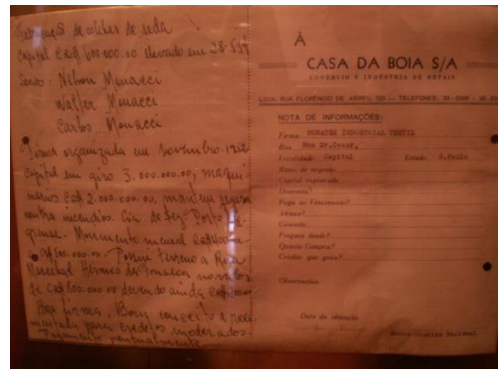 Fabricação de colchas de seda
Capital Cr$ 600.000,00 elevado em 28.5.57
Socios - Nelson Monacci
Walter Monacci
Carlos Monacci
Firma organizada em novembro 1952
Capital em giro 3.000.000,00, maqui
narios Cr$ 2.000.000,00, mantem seguro
contra incendios. Cia de Seg. Porto Ale
grense. Movimento mensal
500.000,00 - Possui terreno a Rua
Marechal Hermes da Fonseca no valor
de Cr$ 800.000,00 devendo ainda
Boa firma, Bom conceito e reco
mendada para creditos moderados.
Pagamento pontualmente
À
CASA DA BOIA S/A
COMERCIO E INDÚSTRIA DE METAIS
LOJA: RUA FLORÊNCIO DE ABREU, 123 — TELEFONES:
NOTA DE INFORMAÇÕES:
Firma INDUSTRIAL TEXTIL
Rua Rua Dr.
Localidade Capital Estado S.Paulo
Ramo de negocio
Capital registrado
Desconta?
Paga no Vencimento?
Atraza?
Conceito
Freguês desde?
Quanto Compra?
Crédito que goza?
Observações
Data da obtenção